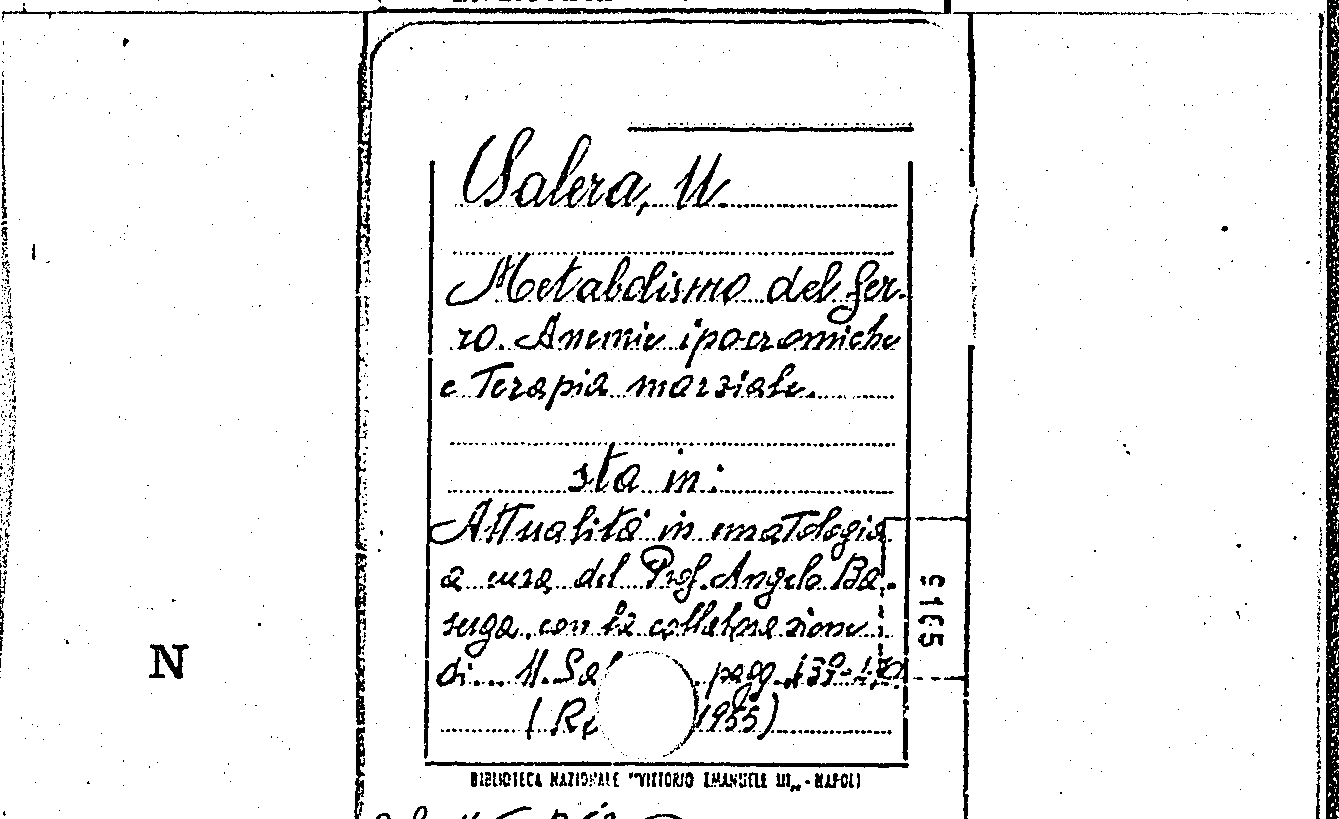 Salera, U.
Metabolismo del fer-
ro. Anemie ipocromiche
e Terapia marziale.
sta in:
Attualità in ematologia
a cura del Prof. Angelo Ba-
serga con la collaborazione
di... U. Sa pagg. 139-
( R 1955)
BIBLIOTECA NAZIONALE "VITTORIO EMANUELE III„ - NAPOLI
N